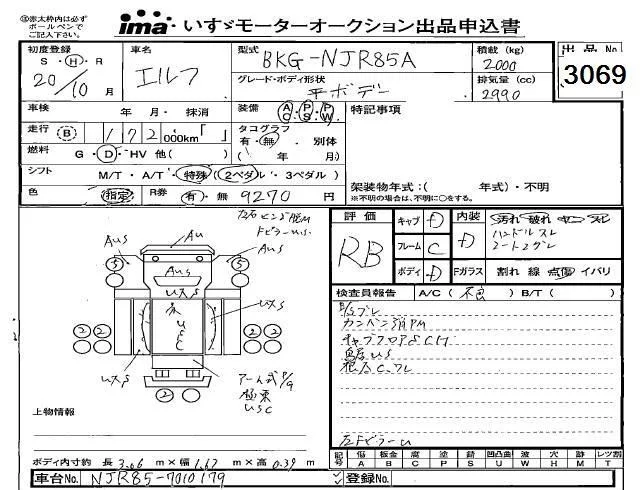 ㊟赤太枠内は必ず
ボールペンで
ご記入下さい。
ima いすゞモーターオークション出品申込書
初度登録
S・H・R
20/10月
車名
エルフ
型式
BKG-NJR85A
グレード・ボディ形状
平ボデー
積載 (kg)
2000
排気量 (cc)
2990
出品No
3069
車検 年 月・ 抹消
走行 B 172 000km「 」
燃料 G・D・HV 他( )
シフト M/T・A/T・特殊(2ペダル・3ペダル)
色 指定 R券 有・無 9270 円
装備 AC PS PW
タコグラフ
有・無・ 別体
( 年 月)
特記事項
架装物年式:( 年式)・不明
※不明の場合は、不明に○をする。
評価
RB
キャブ D
フレーム C
ボディ D
内装 D
汚れ 破れ ヤニ スレ
ハンドルスレ
シートスレ
Fガラス 割れ 線 点傷 イバリ
検査員報告 A/C( 不良 ) B/T( )
カンバン消PM
キャブフロアSCM
左Fピラーu
AuS
Au
AuS
AuS
5
5
UXS
UXS
UXS
2
2
2
2
2
アーム式P/9
USC
上物情報
ボディ内寸約 長 3.06 m×幅 1.67 m×高 0.39 m
車台No. NJR85-7010179
登録No.
記号 傷 A 板金 B 腐 C 塗 P 錆 S 凹凸曲 U 波 W 穴 H 跡 M レツ割 T